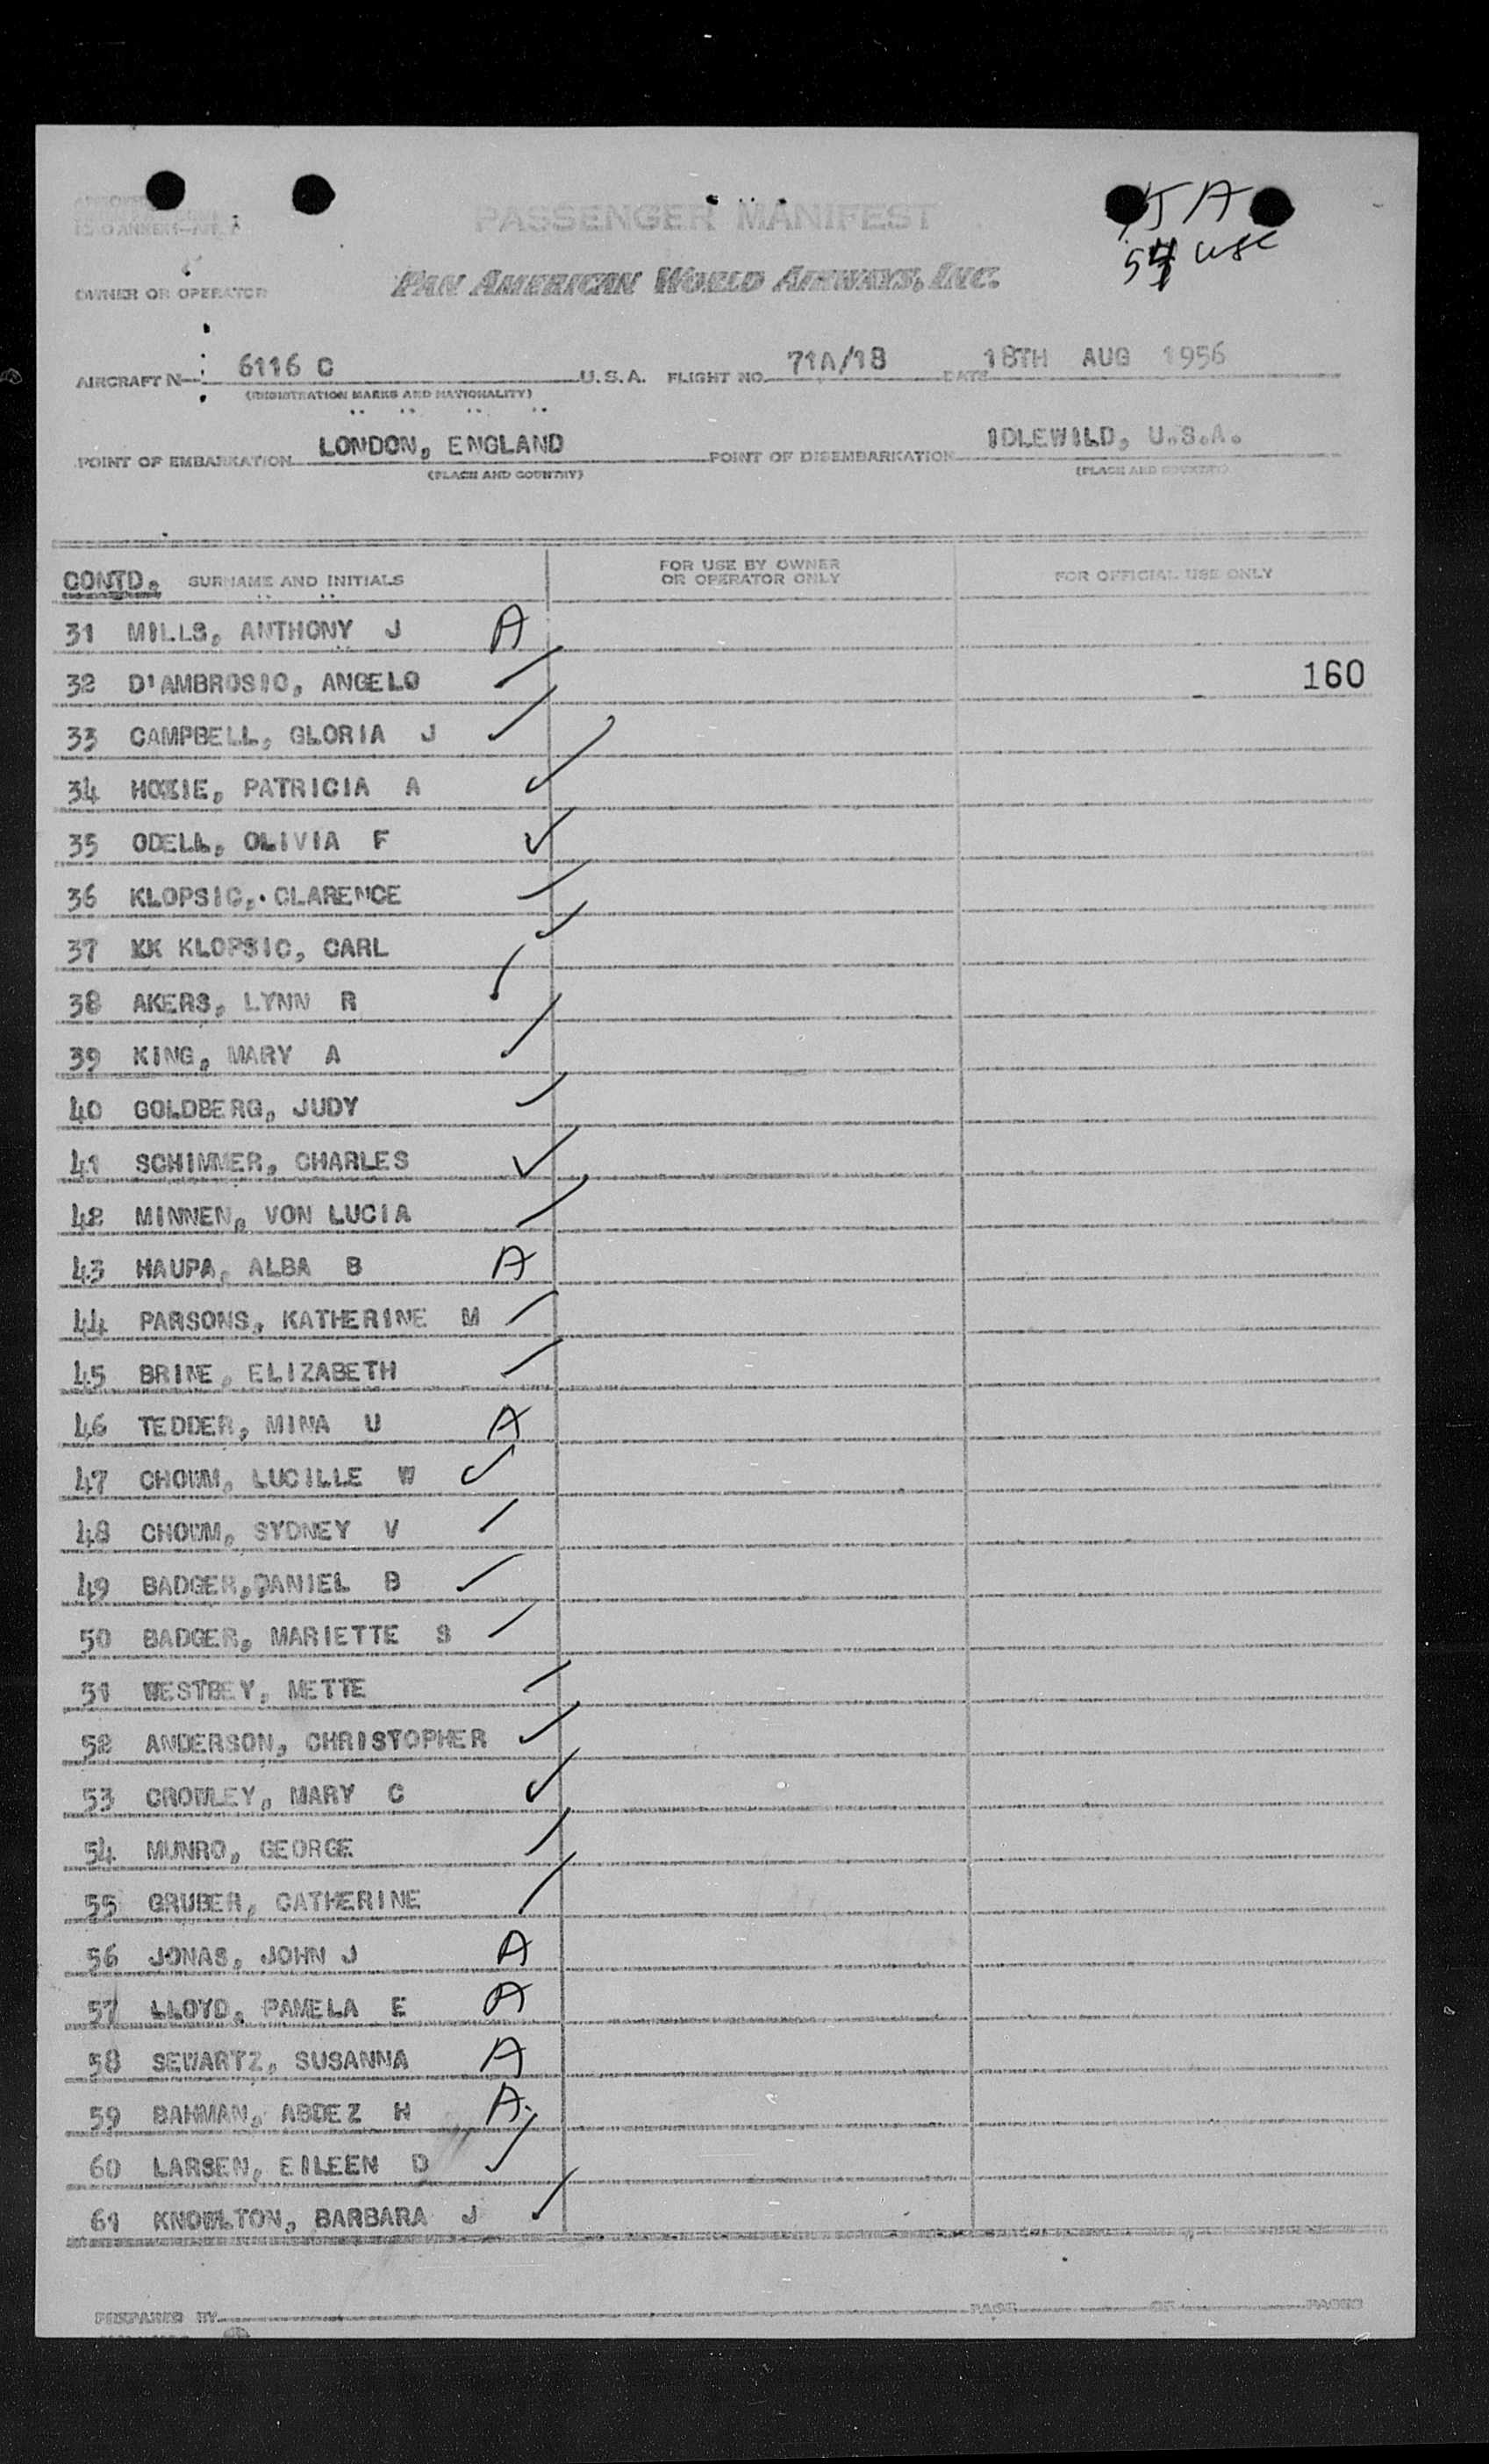 PASSENGER MANIFEST
JA
54 USC
OWNER OR OPERATOR PAN AMERICAN WORLD AIRWAYS, INC.
AIRCRAFT N 6116 C U.S.A. FLIGHT NO. 71A/18 DATE 18TH AUG 1956
(REGISTRATION MARKS AND NATIONALITY)
POINT OF EMBARKATION LONDON, ENGLAND POINT OF DISEMBARKATION IDLEWILD, U.S.A.
(PLACE AND COUNTRY) (PLACE AND COUNTRY)
CONTD. SURNAME AND INITIALS FOR USE BY OWNER OR OPERATOR ONLY FOR OFFICIAL USE ONLY
31 MILLS, ANTHONY J A
32 D'AMBROSIO, ANGELO ✓ 160
33 CAMPBELL, GLORIA J ✓
34 HOXIE, PATRICIA A ✓
35 ODELL, OLIVIA F ✓
36 KLOPSIC, CLARENCE ✓
37 XX KLOPSIC, CARL ✓
38 AKERS, LYNN R ✓
39 KING, MARY A ✓
40 GOLDBERG, JUDY ✓
41 SCHIMMER, CHARLES ✓
42 MINNEN, VON LUCIA ✓
43 HAUPA, ALBA B A
44 PARSONS, KATHERINE M ✓
45 BRINE, ELIZABETH ✓
46 TEDDER, MINA U A
47 CHOWM, LUCILLE W ✓
48 CHOWM, SYDNEY V ✓
49 BADGER, DANIEL B ✓
50 BADGER, MARIETTE S ✓
51 WESTBEY, METTE ✓
52 ANDERSON, CHRISTOPHER ✓
53 CROWLEY, MARY C ✓
54 MUNRO, GEORGE ✓
55 GRUBER, CATHERINE ✓
56 JONAS, JOHN J A
57 LLOYD, PAMELA E A
58 SEWARTZ, SUSANNA A
59 BAHMAN, ABDEZ H A
60 LARSEN, EILEEN D ✓
61 KNOWLTON, BARBARA J ✓
PREPARED BY PAGE OF PAGES